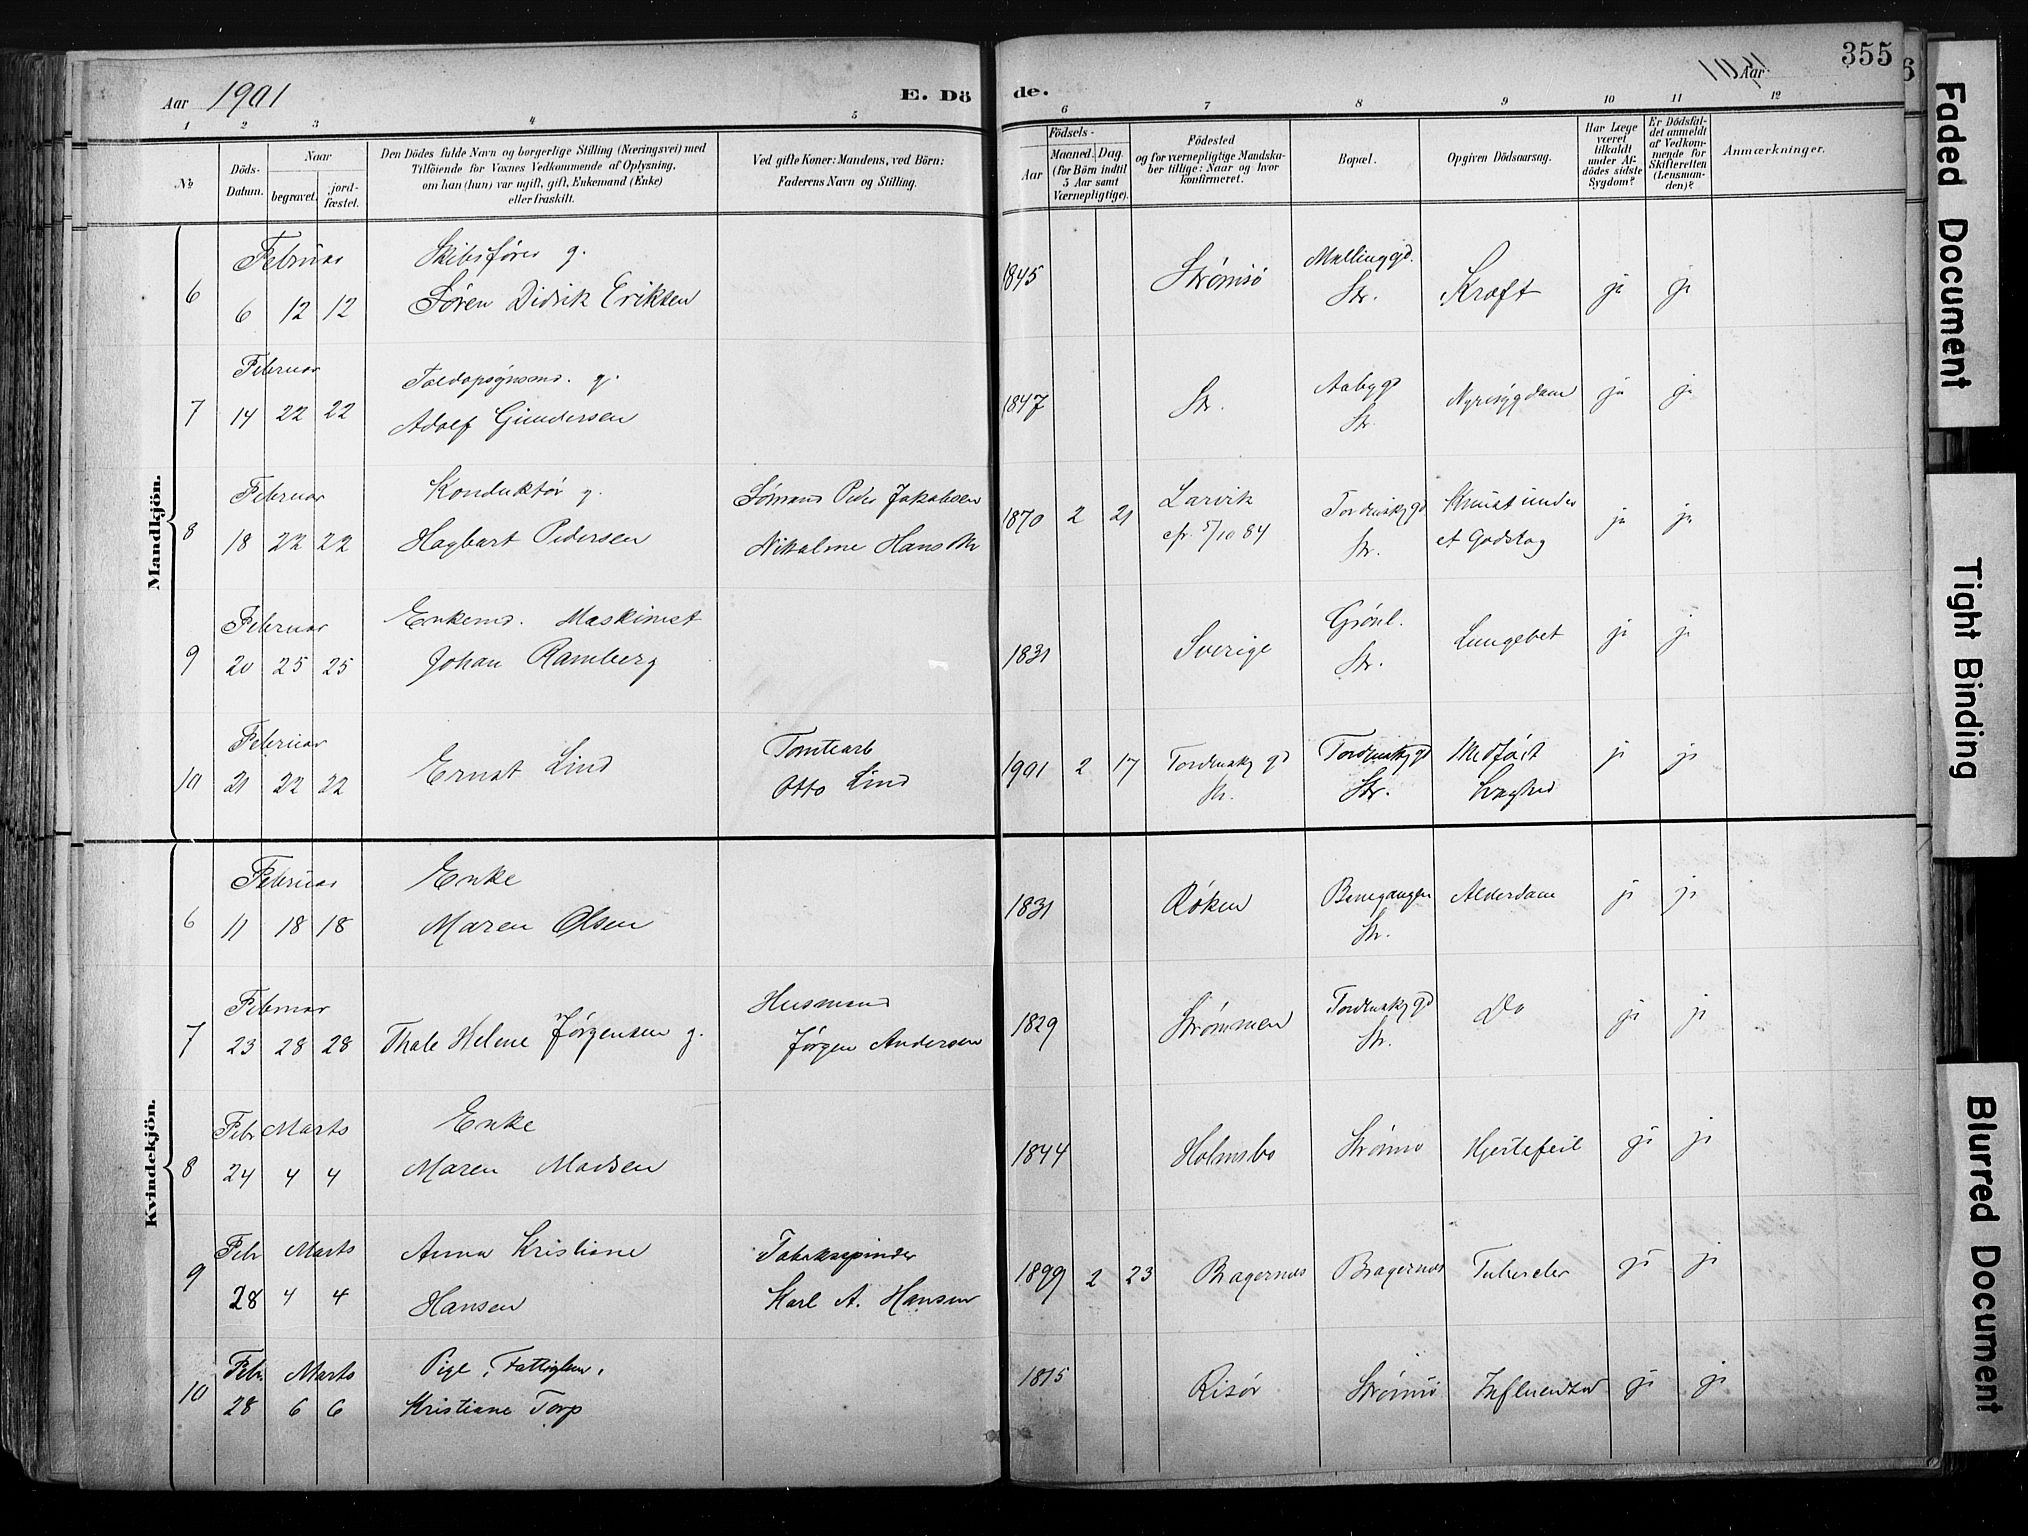 Aar 1901
E. Dö
de.
Aar 1901
355
1 2 3 4 5
6 7 8 9 10 11 12
No
Döds-Datum.
Naar
begravet.
jord-fæstet.
Den Dödes fulde Navn og borgerlige Stilling (Næringsvei) med
Tilföiende for Voxnes Vedkommende af Oplysning,
om han (hun) var ugift, gift, Enkemand (Enke)
eller fraskilt.
Ved gifte Koner: Mandens, ved Börn:
Faderens Navn og Stilling.
Födsels-
Aar
Maaned. Dag.
(for Börn indtil
5 Aar samt
Værnepligtige).
Födested
og for værnepligtige Mandska-
ber tillige: Naar og hvor
konfirmeret.
Bopæl.
Opgiven Dödsaarsag.
Har Læge
været
tilkaldt
under Af-
dödes sidste
Sygdom?
Er Dödsfal-
det anmeldt
af Vedkom-
mende for
Skifteretten
(Lensman-
den)?
Anmærkninger.
Mandkjön.
Februar Skibsfører g. Mællinggd.
6 6 12 12 Søren Didrik Eriksen 1845 Strømsø Str. Kræft ja ja
Februar Toldopsynsmd. g. Aabygd
7 14 22 22 Adolf Gundersen 1847 Str. Str. Nyresygdom ja ja
Februar Konduktør g. Sømand Peder Jakobsen Larvik Tordenskgd Knust under
8 18 22 22 Hagbart Pedersen 1870 2 21 cfr. 5/10 84 Str. et Godstog ja ja
Februar Enkemd. Maskinist Grønl.
9 20 25 25 Johan Ramberg 1831 Sverige Str. Lungebet ja ja
Februar Tomtearb Tordenskgd Tordenskgd Medfødt
10 21 22 22 Ernst Lind Otto Lind 1901 2 17 Str. Str. Svaghed ja ja
Kvindekjön.
Februar Enke
6 11 18 18 Maren Olsen 1831 Røken Str. Alderdom ja ja
Februar Husmand Tordenskgd
7 23 28 28 Thale Helene Jørgensen g. Jørgen Andersen 1829 Strømmen Str. Do ja ja
Febr Marts Enke
8 24 4 4 Maren Madsen 1844 Holmsbo Strømsø Hjertefeil ja ja
Febr Marts Anna Kristiane Tobakspinder
9 28 4 4 Hansen Karl A. Hansen 1899 2 23 Bragernæs Bragernæs Tuberkler ja ja
Febr. Marts Pige, Fattiglem,
10 28 6 6 Kristiane Torp 1815 Risør Strømsø Influentsa ja ja
Faded Document
Tight Binding
Blurred Document